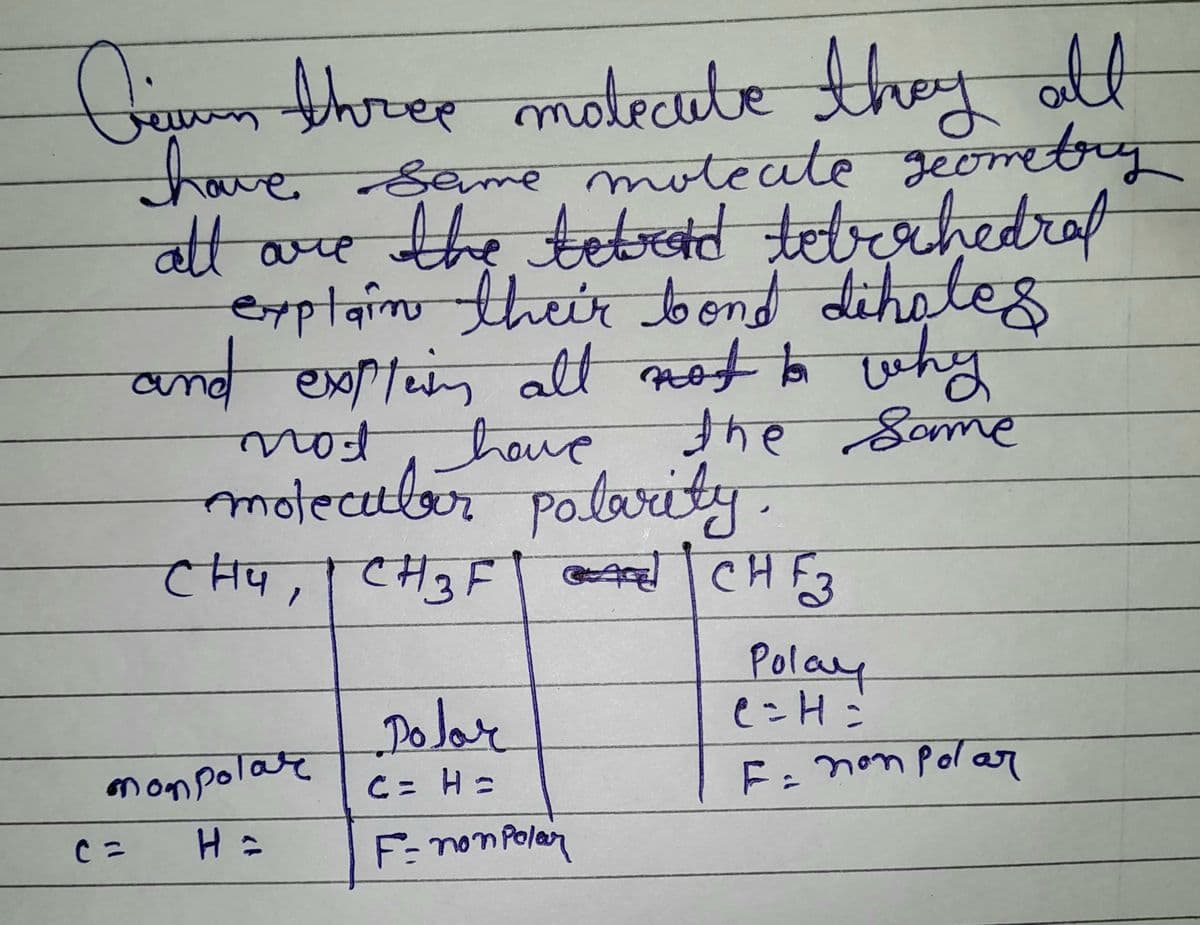 Given three molecule they all
have same molecule geometry
all are the tetrahedral
explain their bond diholes
and explain all not b why
not have the same
molecular polarity.
CH4, | CH3F | and | CHF3
Polar
Polar C = H =
nonpolar C = H = F = non polar
C = H = F = nonpolar